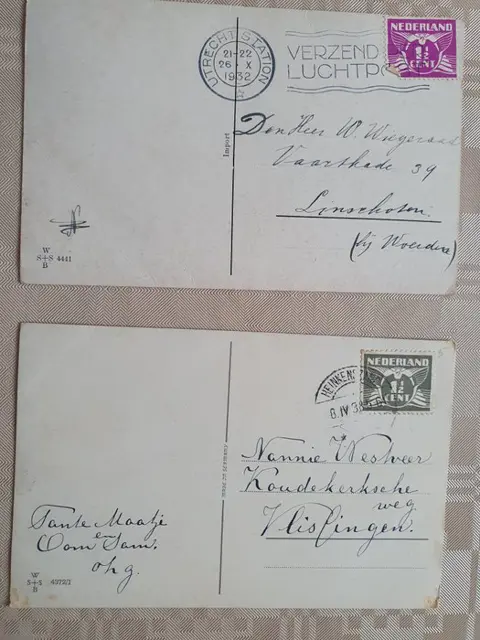 UTRECHT STATION
21-22
26 X
1932
VERZEND
LUCHTPO
NEDERLAND
1½
CENT
Import
Den Heer W. Wiegeraad
Vaartkade 39
Linschoten.
(bij Woerden)
W
S+S 4441
B
HEINKENSZ
NEDERLAND
1½
CENT
MADE IN GERMANY
Nannie Westveer
Koudekerksche
weg
Vlissingen.
Tante Maatje
en
Oom Sam.
o h g.
W
S+S 4372/1
B